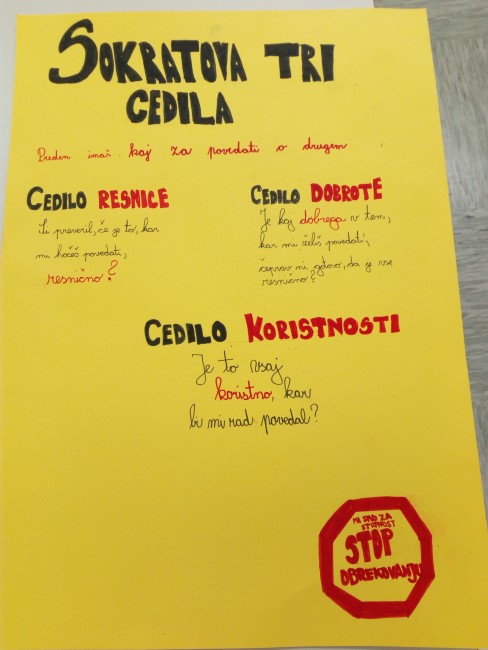 SOKRATOVA TRI
CEDILA
Preden imaš kaj za povedati o drugem
CEDILO RESNICE
Si preveril, če je to, kar
mi hočeš povedati,
resnično?
CEDILO DOBROTE
Je kaj dobrega v tem,
kar mi želiš povedati,
čeprav ni gotovo, da je vse
resnično?
CEDILO KORISTNOSTI
Je to vsaj
koristno, kar
bi mi rad povedal?
ZA
STRPNOST
STOP
OBREKOVANJU